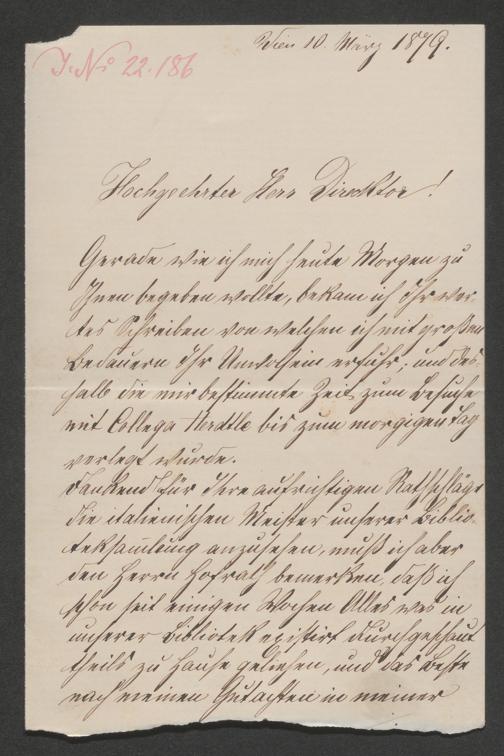 Wien 10. März 1879.
J. No 22. 186
Hochgeehrter Herr Direcktor!
Gerade wie ich mich heute Morgen zu
Ihnen begeben wollte, bekam ich Ihr wer-
tes Schreiben von welchen ich mit großen
Bedauern Ihr Unwolsein erfuhr; und des-
halb die mir bestimmte Zeit zum Besuche
mit Collega Herdtle bis zum morgigen Tag
verlegt wurde.
Dankend für Ihre aufrichtigen Rathschläge
die italienischen Meister unserer Biblio-
teksamlung anzusehen, muß ich aber
den Herrn Hofrath bemerken, daß ich
schon seit einigen Wochen Alles was in
unserer Bibliotek existirt durchgeschaut
theils zu Hause geliehen, und das Beste
nach meinen Gutachten in meiner